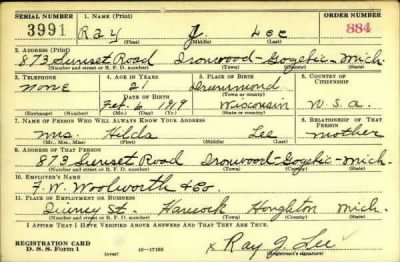 SERIAL NUMBER 1. NAME (Print) ORDER NUMBER
3991 Ray J. Lee 884
(First) (Middle) (Last)
2. ADDRESS (Print)
873 Sunset Road Ironwood-Gogebic-Mich.
(Number and street or R. F. D. number) (Town) (County) (State)
3. TELEPHONE 4. AGE IN YEARS 5. PLACE OF BIRTH 6. COUNTRY OF CITIZENSHIP
None 21 Drummond
DATE OF BIRTH (Town or county)
Feb. 6 1919 Wisconsin U.S.a.
(Exchange) (Number) (Mo.) (Day) (Yr.) (State or country)
7. NAME OF PERSON WHO WILL ALWAYS KNOW YOUR ADDRESS 8. RELATIONSHIP OF THAT PERSON
Mrs. Hilda Lee mother
(Mr., Mrs., Miss) (First) (Middle) (Last)
9. ADDRESS OF THAT PERSON
873 Sunset Road Ironwood-Gogebic-Mich.
(Number and street or R. F. D. number) (Town) (County) (State)
10. EMPLOYER'S NAME
F. W. Woolworth & Co.
11. PLACE OF EMPLOYMENT OR BUSINESS
Quincy St. Hancock Houghton Mich.
(Number and street or R. F. D. number) (Town) (County) (State)
I AFFIRM THAT I HAVE VERIFIED ABOVE ANSWERS AND THAT THEY ARE TRUE.
REGISTRATION CARD
D. S. S. Form 1 (over) 16-17105 x Ray J. Lee
(Registrant's signature)